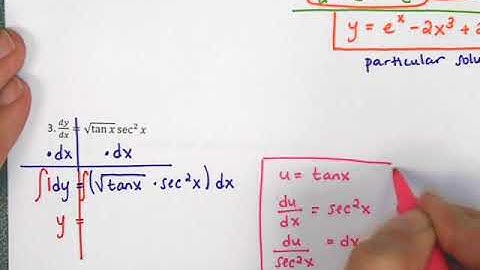 y = eˣ - 2x³ + 2
particular solu
3. dy/dx = √tan x sec² x
• dx • dx
∫1dy = ∫(√tanx • sec²x) dx
y =
u = tanx
du/dx = sec²x
du/sec²x = dx